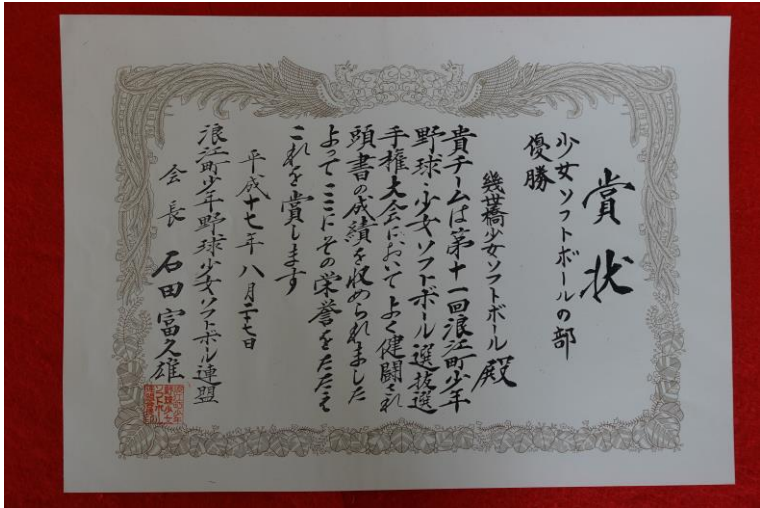 賞状
少女ソフトボールの部
優勝
幾世橋少女ソフトボール殿
貴チームは第十一回浪江町少年
野球・少女ソフトボール選抜選
手権大会においてよく健闘され
頭書の成績を収められました
よってここにその栄誉をたたえ
これを賞します
平成十七年八月二十七日
浪江町少年野球少女ソフトボール連盟
会長 石田富久雄